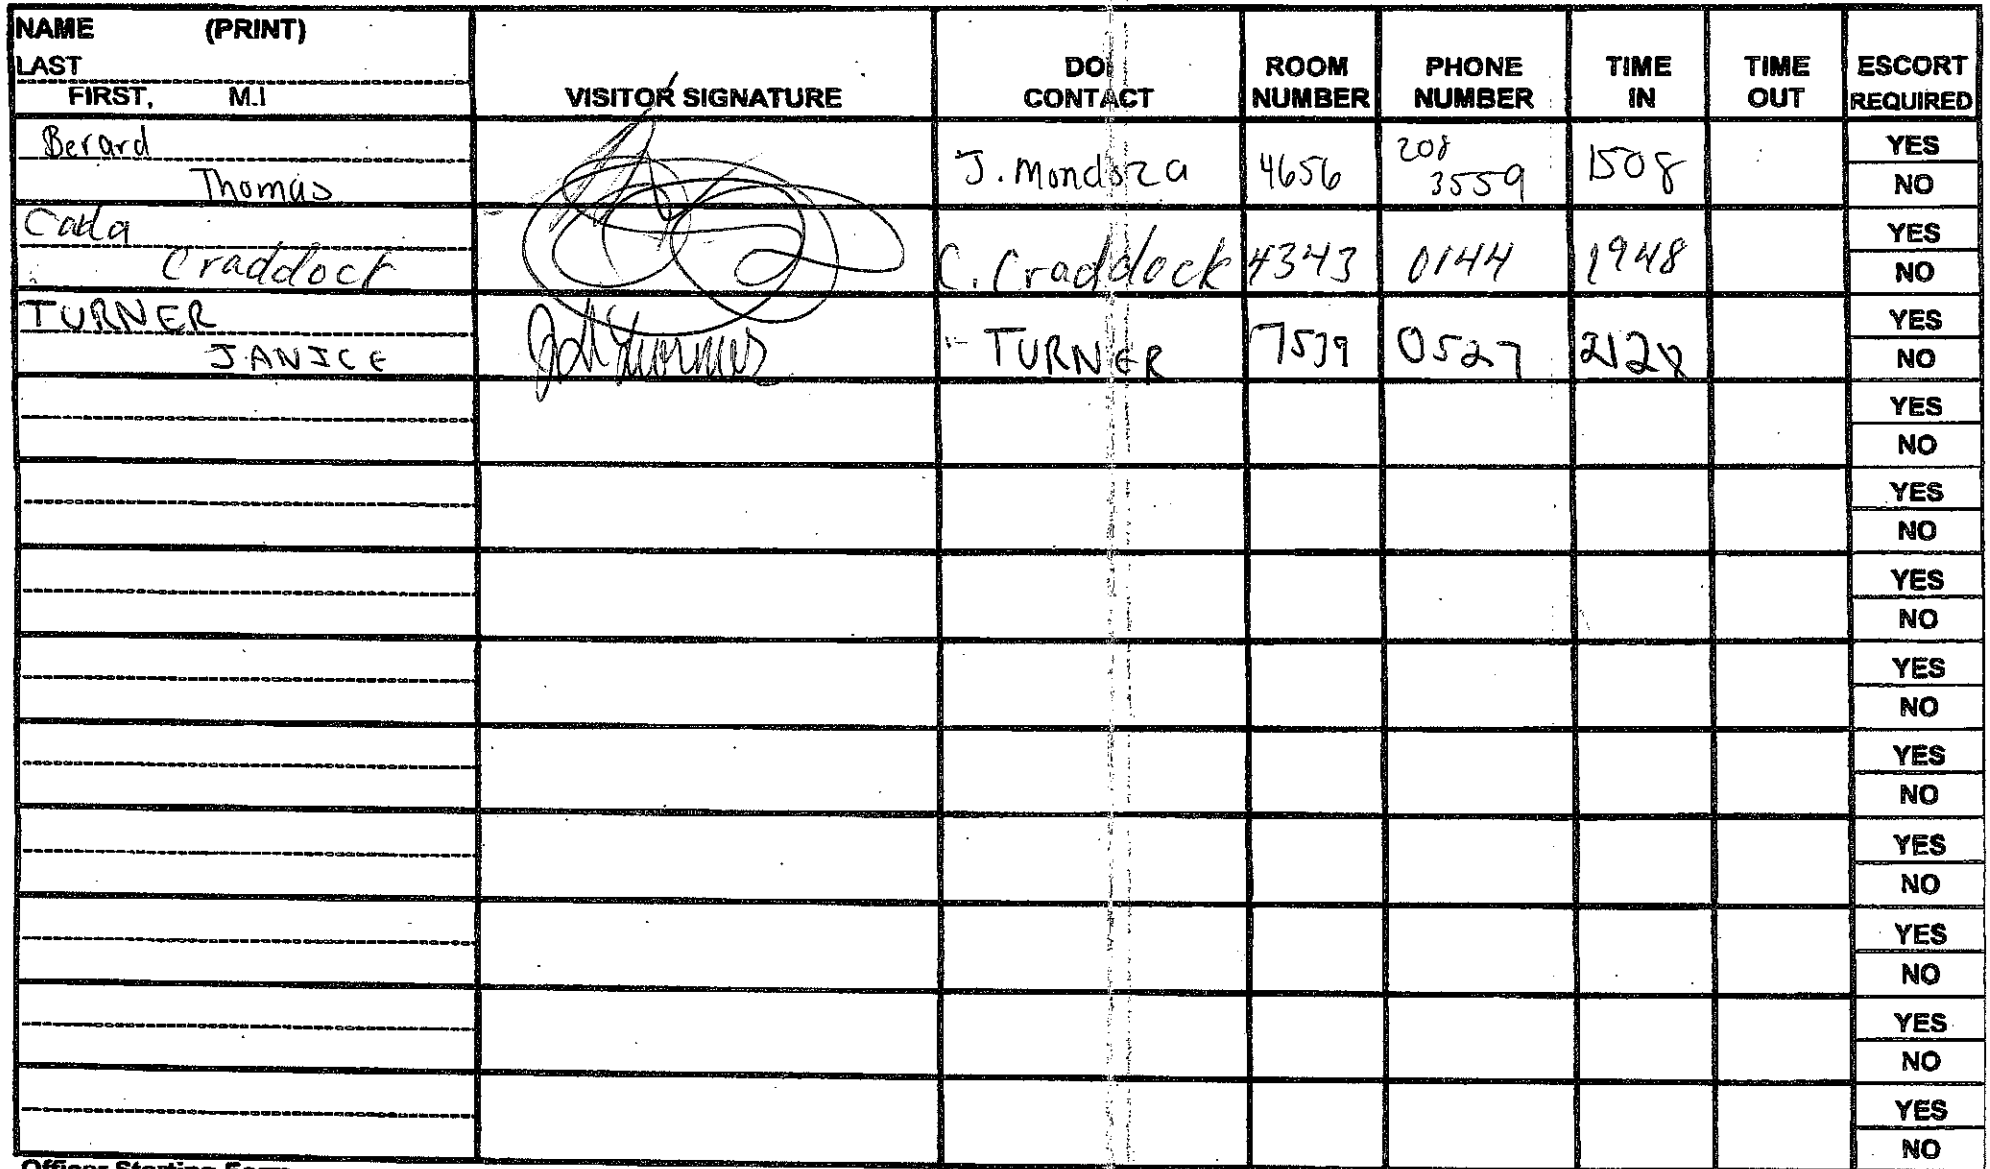 NAME (PRINT)
LAST
FIRST, M.I
VISITOR SIGNATURE
DOI
CONTACT
ROOM
NUMBER
PHONE
NUMBER
TIME
IN
TIME
OUT
ESCORT
REQUIRED
Berard
Thomas
J. Mondoza
4656
208
3559
1508
YES
NO
Carla
Craddock
C. Craddock
4343
0144
1948
YES
NO
TURNER
JANICE
TURNER
7539
0527
2128
YES
NO
YES
NO
YES
NO
YES
NO
YES
NO
YES
NO
YES
NO
YES
NO
YES
NO
YES
NO
Officer Starting Form